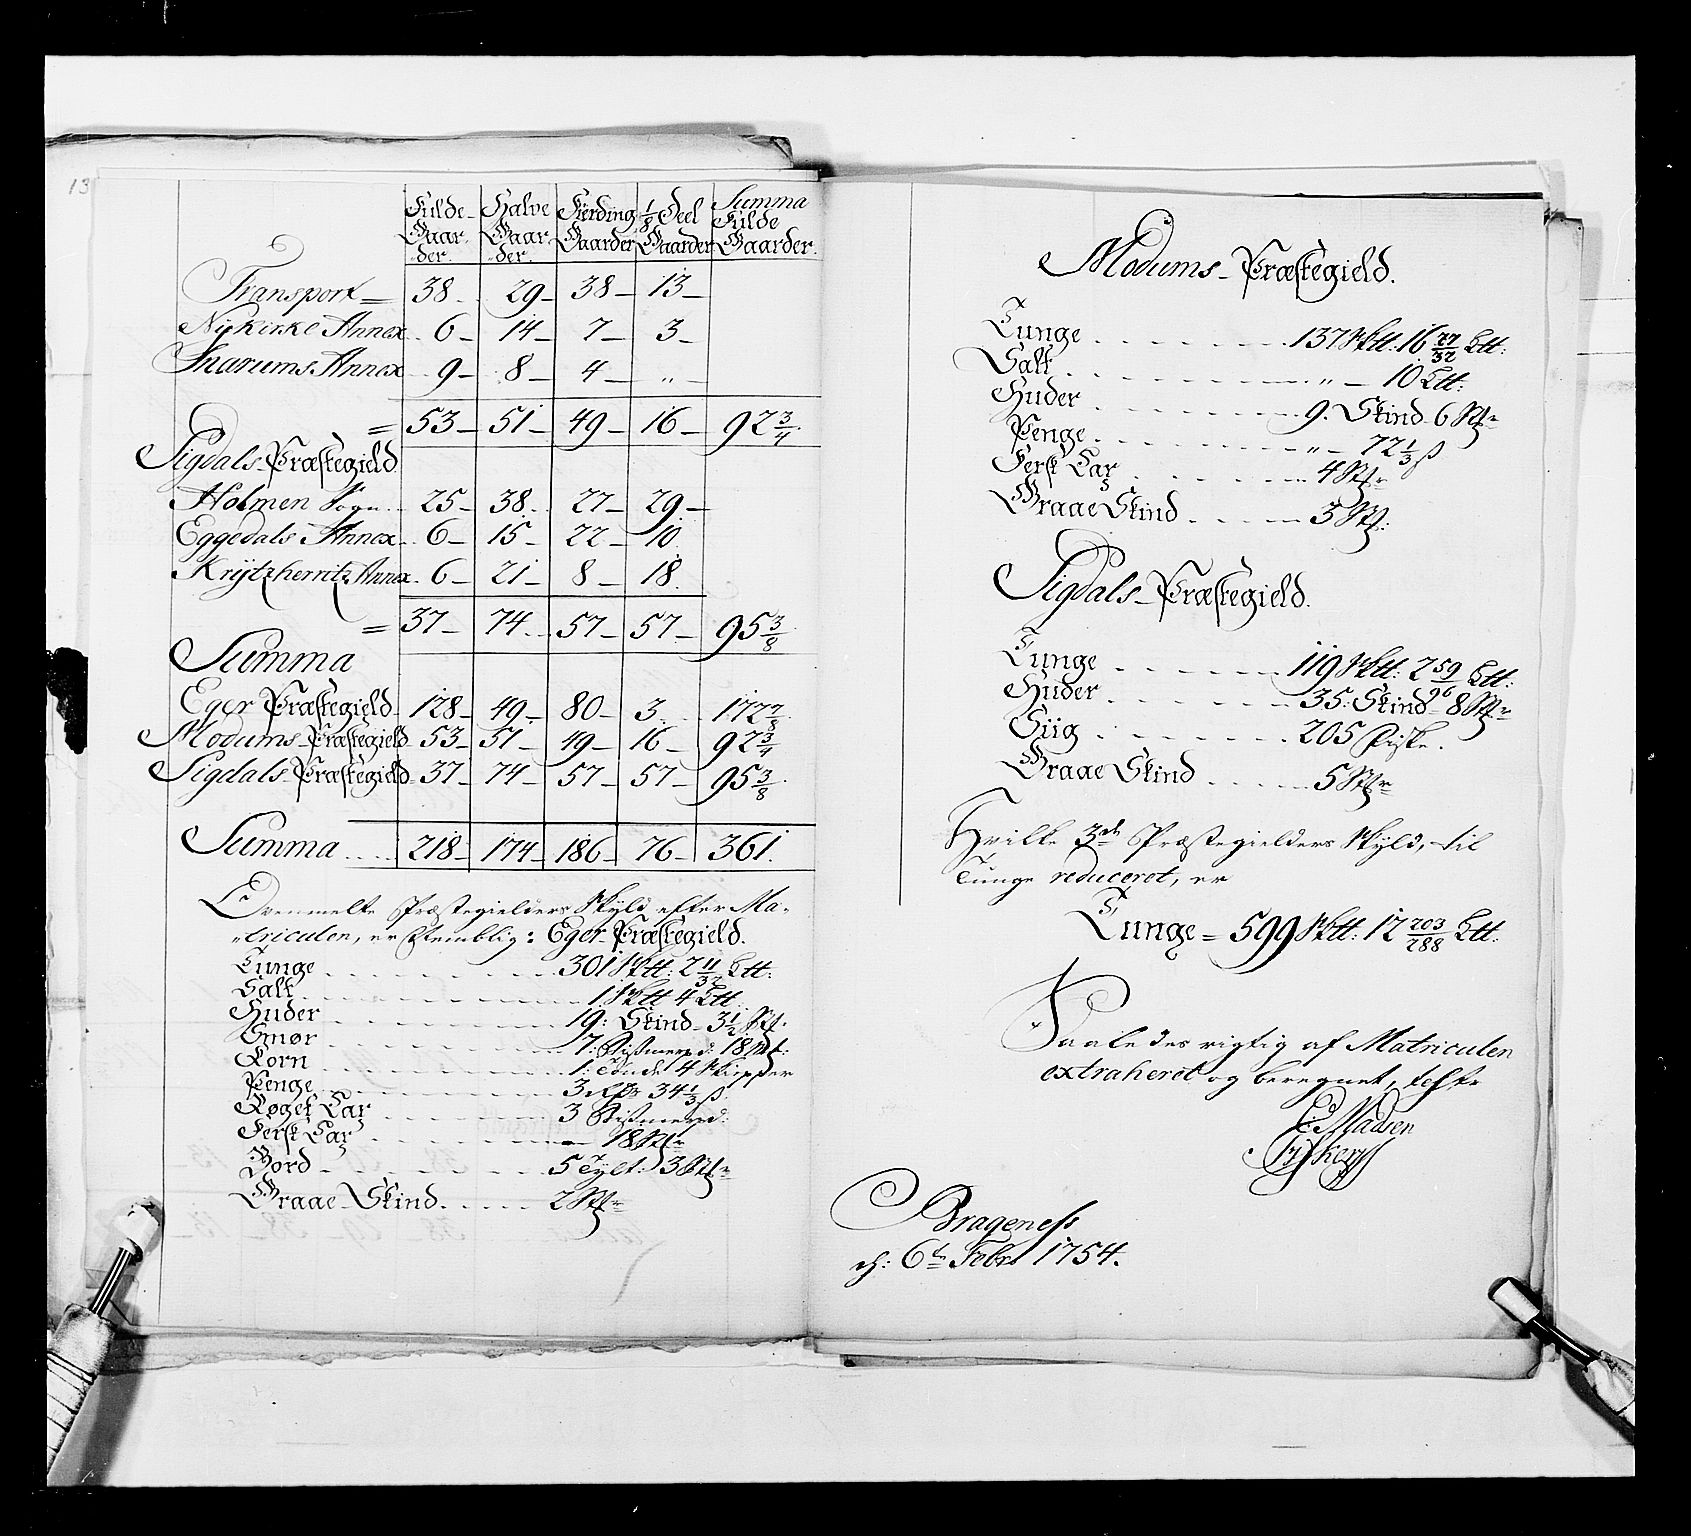 13
Fulde- Gaar- der. Halve Gaar- der. Fierding Gaarder 1/8 Deel Gaarder Summa Fulde Gaarder.
Transport = 38 - 29 - 38 - 13 -
Nykirke Annex .. 6 - 14 - 7 - 3 -
Snarums Annex 9 - 8 - 4 - „ -
= 53 - 51 - 49 - 16 - 92 3/4.
Sigdals-Præstegield
Holmen Sogn .. 25 - 38 .. 27 - 29 -
Eggedals Annex .. 6 - 15 - 22 - 10
Krÿtzherritz Annex . 6 - 21 - 8 - 18.
= 37 - 74 .. 57 - 57 - 95 3/8
Summa
Eger Præstegield - 128 - 49 - 80 - 3 .. 172 7/8.
Modums-Præstegield - 53 - 51 - 49 - 16 - 92 3/4
Sigdals-Præstegield - 37 - 74 - 57 - 57 - 95 3/8.
Summa .... 218 - 174 - 186 - 76 - 361.
Ovenmelte Præstegielders Skyld efter Ma-
triculen, er : Eger-Præstegield.
Tunge ........ 301 Sktt: 2 11/32 Ltt:
Salt ........ 1 Sktt 4 Ltt
Huder ........ 19: Skind- 3 1/2 Stk.
Smør ........ 7: Bismerpd: 18 Mk:
Korn ........ 1: Tønde 4 Skiepper
Penge ........ 3 Rdr 34 1/3 ß.
Røget Lax ........ 3 Bismerpd:
Fersk Lax ........ 18 Stkr
Bord ........ 5 Tylt: 3 Stkr
Graae-Skind ..... 2 Stkr
Modums-Præstegield.
Tunge ........ 137 Sktt: 16 27/32 Ltt:
Salt ........ „ - 10 Ltt:
Huder ........ 9. Skind- 6 Stkr
Penge ........ „ - 72 1/3 ß
Fersk Lax ........ 4 Stkr
Graae Skind ..... 3 Stk:
Sigdals-Præstegield.
Tunge ........ 119 Sktt: 2 59/96 Ltt:
Huder ........ 35: Skind- 8 Stkr
Siig ........ 205 Fiske.
Graae Skind ..... 5 Stkr
Hvilke 3de Præstegielders Skyld, til
Tunge reduceret, er
Tunge = 599 Sktt: 12 203/288 Ltt:
Saaledes rigtig af Matriculen
extraheret og beregnet, 
Madsen
Brageness
d: 6te Febr 1754.